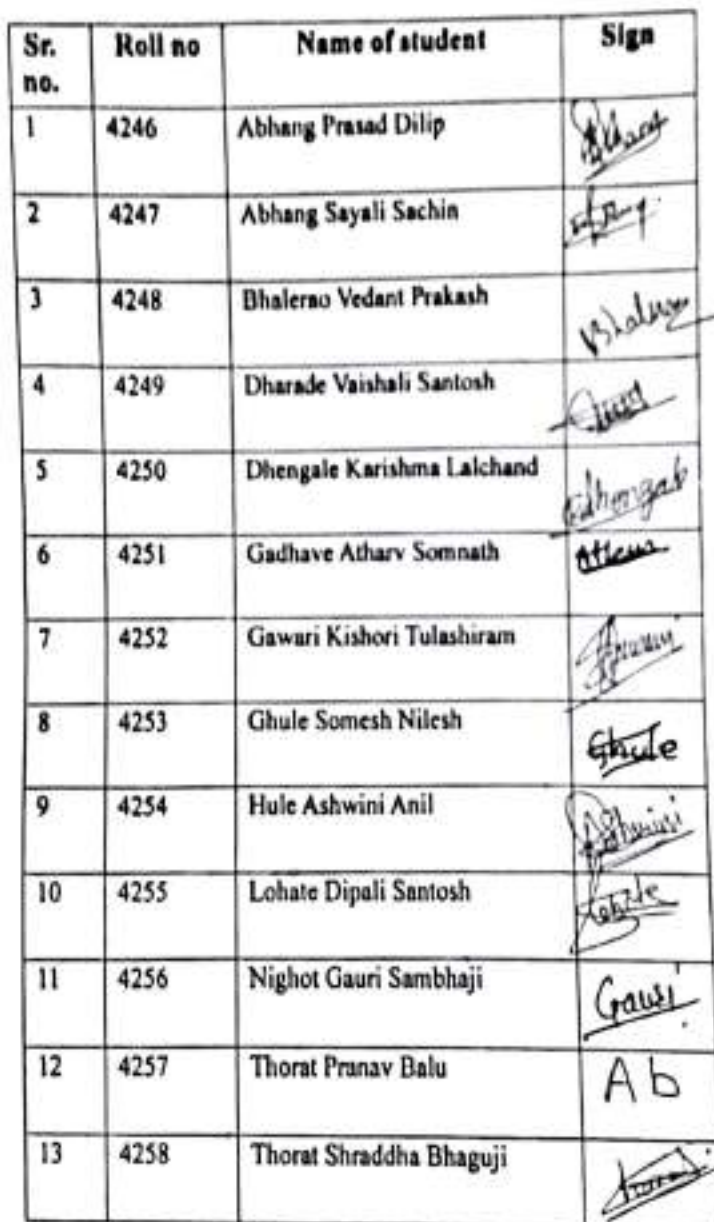 Sr. no. Roll no Name of student Sign
1 4246 Abhang Prasad Dilip
2 4247 Abhang Sayali Sachin
3 4248 Bhalerao Vedant Prakash
4 4249 Dharade Vaishali Santosh
5 4250 Dhengale Karishma Lalchand
6 4251 Gadhave Atharv Somnath
7 4252 Gawari Kishori Tulashiram
8 4253 Ghule Somesh Nilesh Ghule
9 4254 Hule Ashwini Anil
10 4255 Lohate Dipali Santosh
11 4256 Nighot Gauri Sambhaji Gauri
12 4257 Thorat Pranav Balu Ab
13 4258 Thorat Shraddha Bhaguji